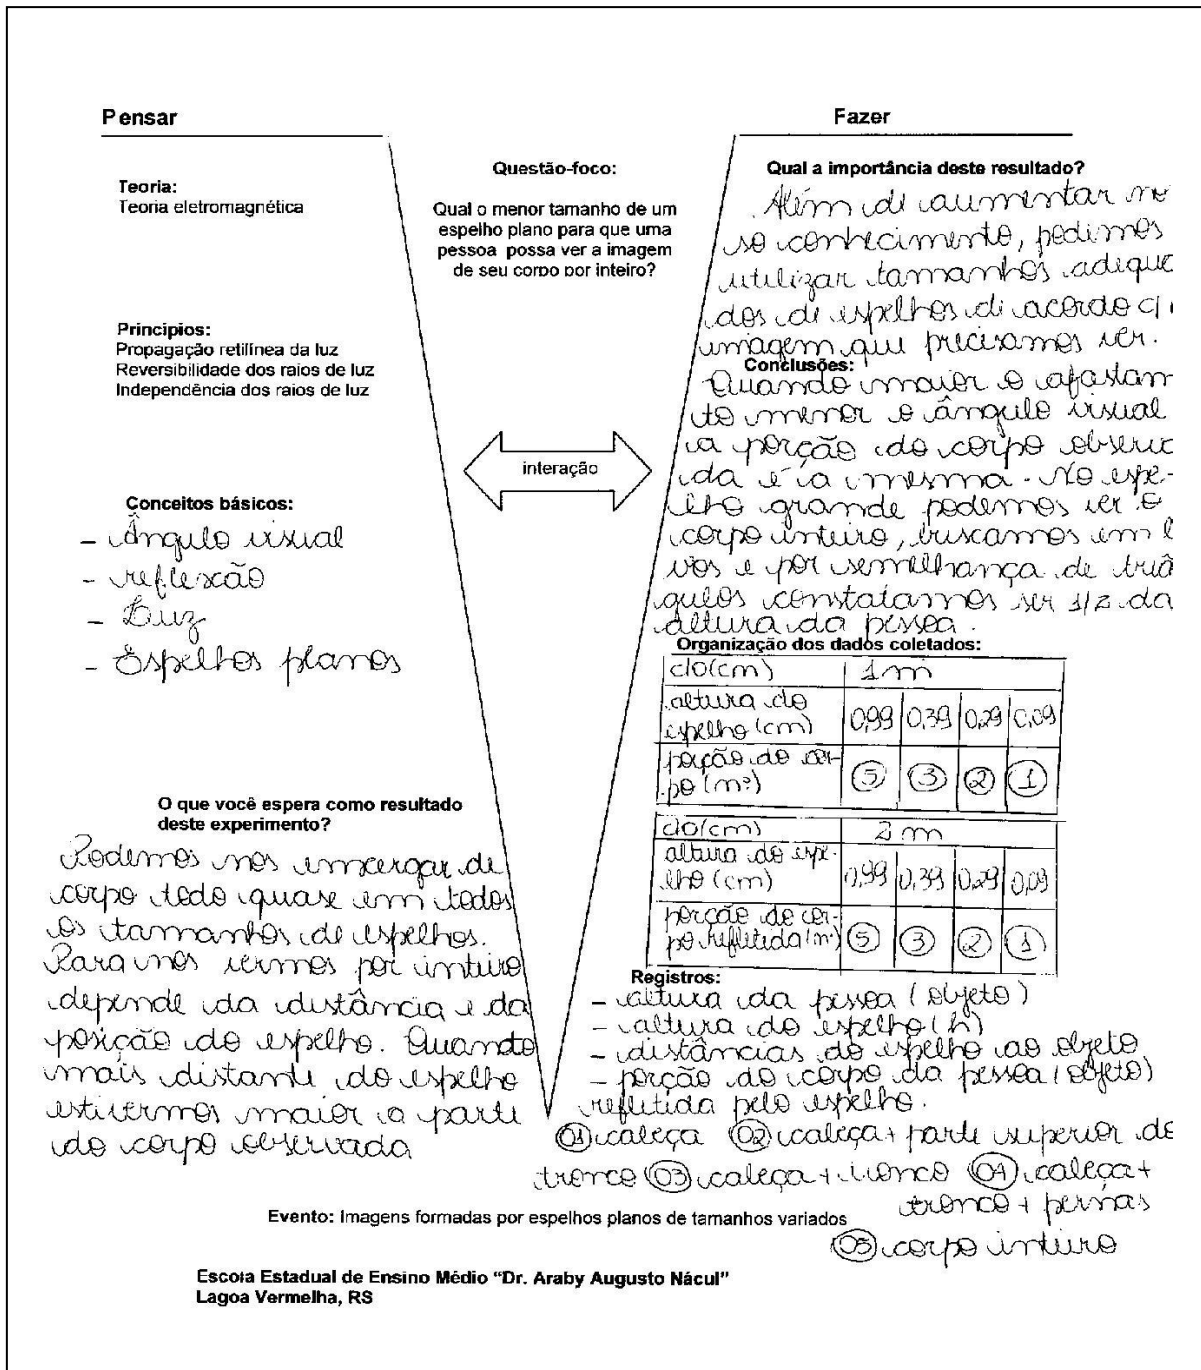 Pensar
Teoria:
Teoria eletromagnética
Princípios:
Propagação retilínea da luz
Reversibilidade dos raios de luz
Independência dos raios de luz
Conceitos básicos:
- Ângulo visual
- reflexão
- Luz
- Espelhos planos
O que você espera como resultado
deste experimento?
Podemos nos enxergar de
corpo todo quase em todos
os tamanhos de espelhos.
Para nos vermos por inteiro
depende da distância e da
posição do espelho. Quando
mais distante do espelho
estivermos maior a parte
do corpo observada
Questão-foco:
Qual o menor tamanho de um
espelho plano para que uma
pessoa possa ver a imagem
de seu corpo por inteiro?
interação
Fazer
Qual a importância deste resultado?
Além de aumentar no
so conhecimento, podemos
utilizar tamanhos adequa
dos de espelhos de acordo c/
imagem que precisamos ver.
Conclusões:
Quando maior o afastam
to menor o ângulo visual
a porção do corpo observ
da é a mesma. No espe-
lho grande podemos ver o
corpo inteiro, buscamos em l
vos e por semelhança de triâ
gulos constatamos ser 1/2 da
altura da pessoa.
Organização dos dados coletados:
do(cm) 1m
altura do
espelho (cm) 0,99 0,39 0,29 0,09
porção do cor-
po (nº) 5 3 2 1
do(cm) 2m
altura do espe-
lho (cm) 0,99 0,39 0,29 0,09
porção do cor-
po refletida (nº) 5 3 2 1
Registros:
- altura da pessoa (objeto)
- altura do espelho (h)
- distâncias do espelho ao objeto
- porção do corpo da pessoa (objeto)
refletida pelo espelho.
01 cabeça 02 cabeça + parte superior do
tronco 03 cabeça + tronco 04 cabeça +
tronco + pernas
05 corpo inteiro
Evento: Imagens formadas por espelhos planos de tamanhos variados
Escola Estadual de Ensino Médio “Dr. Araby Augusto Nácul”
Lagoa Vermelha, RS